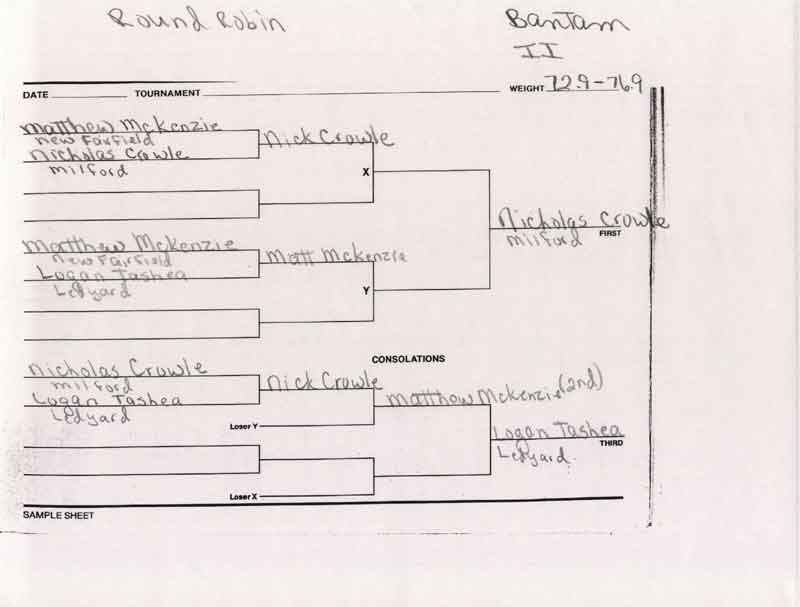 Round Robin
Bantam
II
DATE TOURNAMENT WEIGHT 72.9-76.9
Matthew McKenzie
New Fairfield
Nicholas Crowle
Milford
Nick Crowle
X
Nicholas Crowle
Milford FIRST
Matthew McKenzie
New Fairfield
Logan Tashea
Ledyard
Matt McKenzie
Y
CONSOLATIONS
Nicholas Crowle
Milford
Logan Tashea
Ledyard
Nick Crowle
Loser Y
Matthew McKenzie (2nd)
Logan Tashea
THIRD
Ledyard
Loser X
SAMPLE SHEET